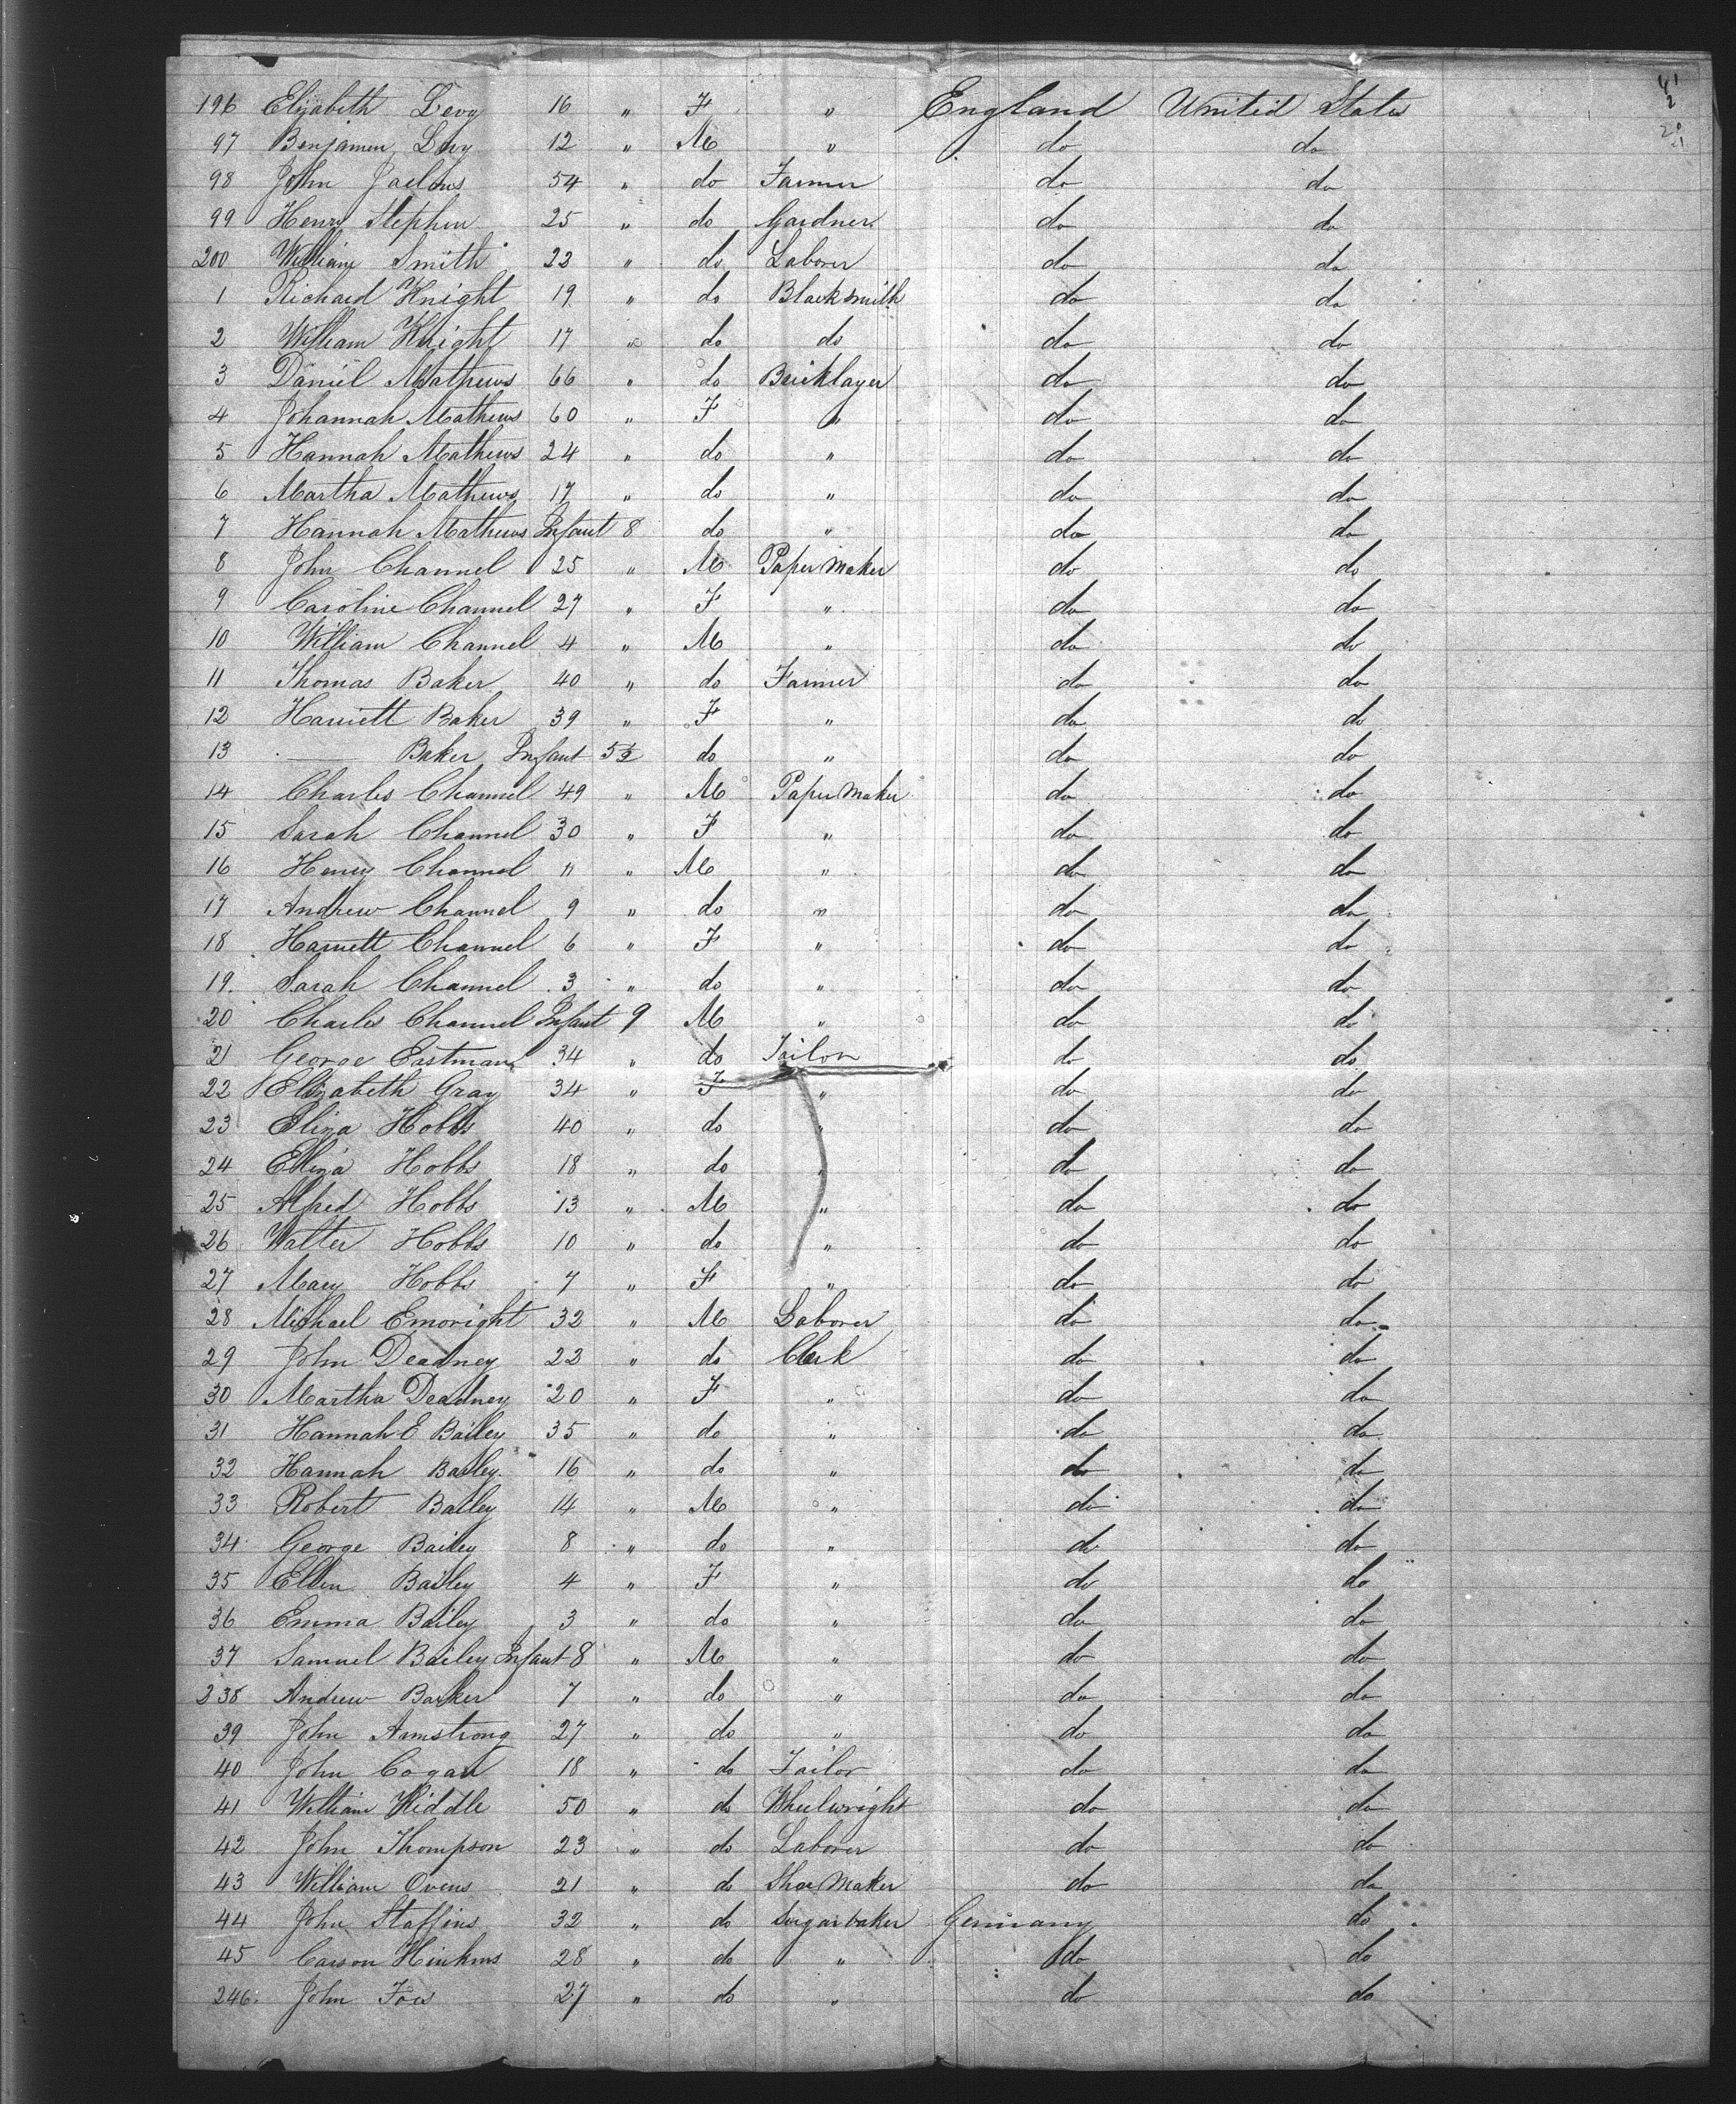 41
2
20
21
196 Elizabeth Levy 16 " F " England United States
97 Benjamin Levy 12 " M " do do
98 John 54 " do Farmer do do
99 Henry Stephen 25 " do Gardner do do
200 William Smith 22 " do Laborer do do
1 Richard Knight 19 " do Blacksmith do do
2 William Knight 17 " do do do do
3 Daniel Mathews 66 " do Bricklayer do do
4 Johannah Mathews 60 " F " do do
5 Hannah Mathews 24 " do " do do
6 Martha Mathews 17 " do " do do
7 Hannah Mathews Infant 8 do " do do
8 John Channel 25 " M Paper Maker do do
9 Caroline Channel 27 " F " do do
10 William Channel 4 " M " do do
11 Thomas Baker 40 " do Farmer do do
12 Harriett Baker 39 " F " do do
13 —— Baker Infant 5½ do " do do
14 Charles Channel 49 " M Paper Maker do do
15 Sarah Channel 30 " F " do do
16 Henry Channel 11 " M " do do
17 Andrew Channel 9 " do " do do
18 Harriett Channel 6 " F " do do
19 Sarah Channel 3 " do " do do
20 Charles Channel Infant 9 M " do do
21 George Eastman 34 " do Tailor do do
22 Elizabeth Gray 34 " F " do do
23 Eliza Hobbs 40 " do " do do
24 Eliza Hobbs 18 " do " do do
25 Alfred Hobbs 13 " M " do do
26 Walter Hobbs 10 " do " do do
27 Mary Hobbs 7 " F " do do
28 Michael Emoright 32 " M Laborer do do
29 John Deadney 22 " do Clerk do do
30 Martha Deadney 20 " F " do do
31 Hannah E Bailey 35 " do " do do
32 Hannah Bailey 16 " do " do do
33 Robert Bailey 14 " M " do do
34 George Bailey 8 " do " do do
35 Ellen Bailey 4 " F " do do
36 Emma Bailey 3 " do " do do
37 Samuel Bailey Infant 8 " M " do do
238 Andrew Barker 7 " do " do do
39 John Armstrong 27 " do " do do
40 John Cogan 18 " do Tailor do do
41 William Kiddle 50 " do Wheelwright do do
42 John Thompson 23 " do Laborer do do
43 William Ovens 21 " do Shoe Maker do do
44 John Staffins 32 " do Sugar baker Germany do
45 Carson Hinkins 28 " do " do do
246 John 27 " do " do do